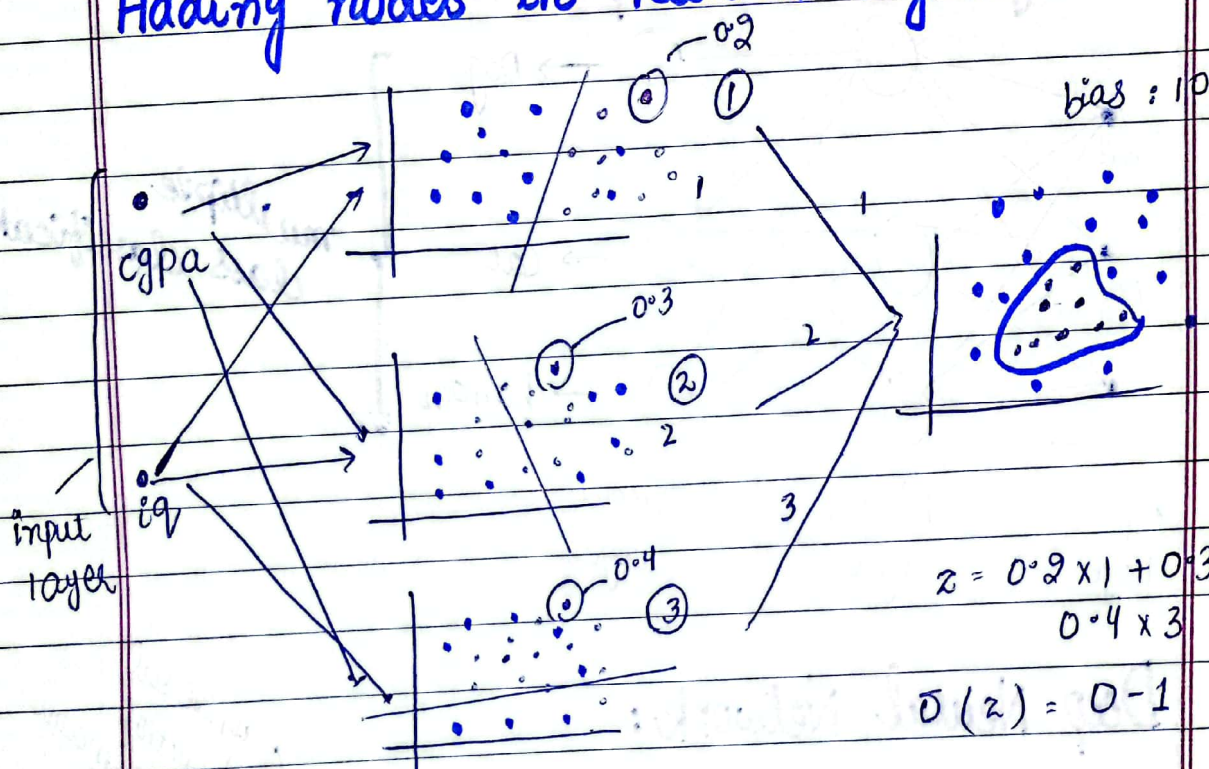 Hading nodes in
0.2
1
bias : 10
1
1
cgpa
0.3
2
2
2
iq
input
layer
3
0.4
3
z = 0.2 x 1 + 0.3
0.4 x 3
σ (z) = 0-1